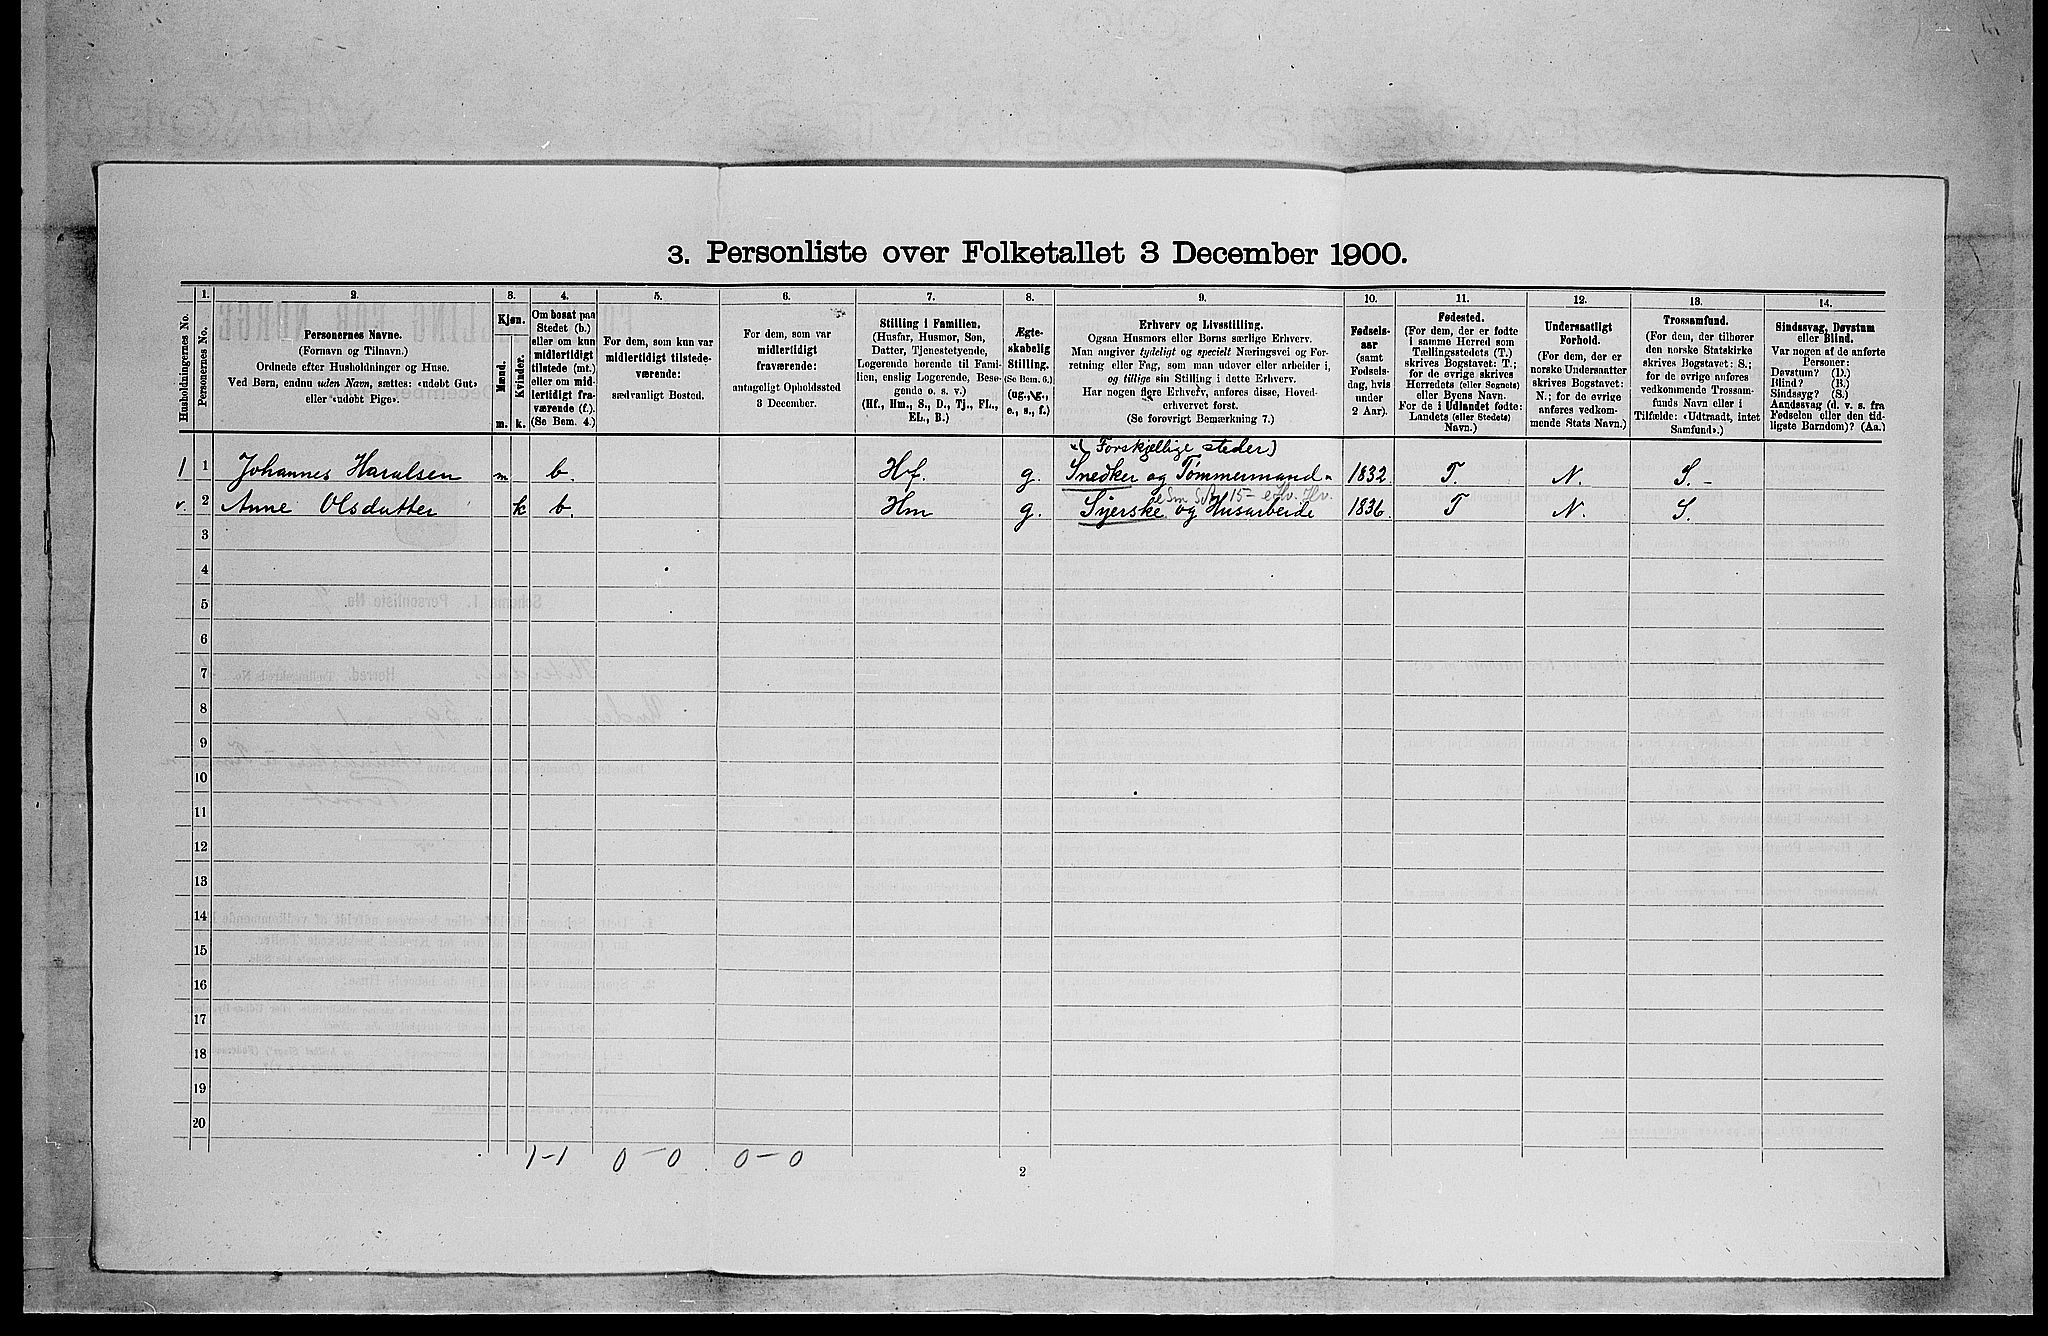 3. Personliste over Folketallet 3 December 1900.
Husholdningernes No.
1.
Personernes No.
2.
Personernes Navne.
(Fornavn og Tilnavn.)
Ordnede efter Husholdninger og Huse.
Ved Børn, endnu uden Navn, sættes: «udøbt Gut»
eller «udøbt Pige».
3.
Kjøn.
Mænd.
Kvinder.
m.
k.
4.
Om bosat paa
Stedet (b.)
eller om kun
midlertidigt
tilstede (mt.)
eller om mid-
lertidigt fra-
værende (f.).
(Se Bem. 4.)
5.
For dem, som kun var
midlertidigt tilstede-
værende:
sædvanligt Bosted.
6.
For dem, som var
midlertidigt
fraværende:
antageligt Opholdssted
3 December.
7.
Stilling i Familien.
(Husfar, Husmor, Søn,
Datter, Tjenestetyende,
Logerende hørende til Fami-
lien, enslig Logerende, Besø-
gende o. s. v.)
(Hf., Hm., S., D., Tj., FL.,
EL., B.)
8.
Ægte-
skabelig
Stilling.
(Se Bem. 6.)
(ug., g.,
e., s., f.)
9.
Erhverv og Livsstilling.
Ogsaa Husmors eller Børns særlige Erhverv.
Man angiver tydeligt og specielt Næringsvei og For-
retning eller Fag, som man udøver eller arbeider i,
og tillige sin Stilling i dette Erhverv.
Har nogen flere Erhverv, anføres disse, Hoved-
erhvervet først.
(Se forøvrigt Bemærkning 7.)
10.
Fødsels-
aar
(samt
Fødsels-
dag, hvis
under
2 Aar).
11.
Fødested.
(For dem, der er fødte
i samme Herred som
Tællingsstedets (T.)
skrives Bogstavet: T.;
for de øvrige skrives
Herredets (eller Sognets)
eller Byens Navn.
For de i Udlandet fødte:
Landets (eller Stedets)
Navn.)
12.
Undersaatligt
Forhold.
(For dem, der er
norske Undersaatter
skrives Bogstavet:
N.; for de øvrige
anføres vedkom-
mende Stats Navn.)
13.
Trossamfund.
(For dem, der tilhører
den norske Statskirke
skrives Bogstavet: S.;
for de øvrige anføres
vedkommende Trossam-
funds Navn eller i
Tilfælde: «Udtraadt, intet
Samfund».)
14.
Sindssvag, Døvstum
eller Blind.
Var nogen af de anførte
Personer:
Døvstum? (D.)
Blind? (B.)
Sindssyg? (S.)
Aandssvag (d. v. s. fra
Fødselen eller den tid-
ligste Barndom)? (Aa.)
(Forskjellige steder)
1 1 Johannes Haralsen m b. Hf. g. Snedker og Tømmermand 1832. T. N. S.
15-
v. 2 Anne Olsdatter k b. Hm g. Syerske og Husarbeide 1836. T N. S.
3
4
5
6
7
8
9
10
11
12
13
14
15
16
17
18
19
20
1-1 0-0 0-0
2